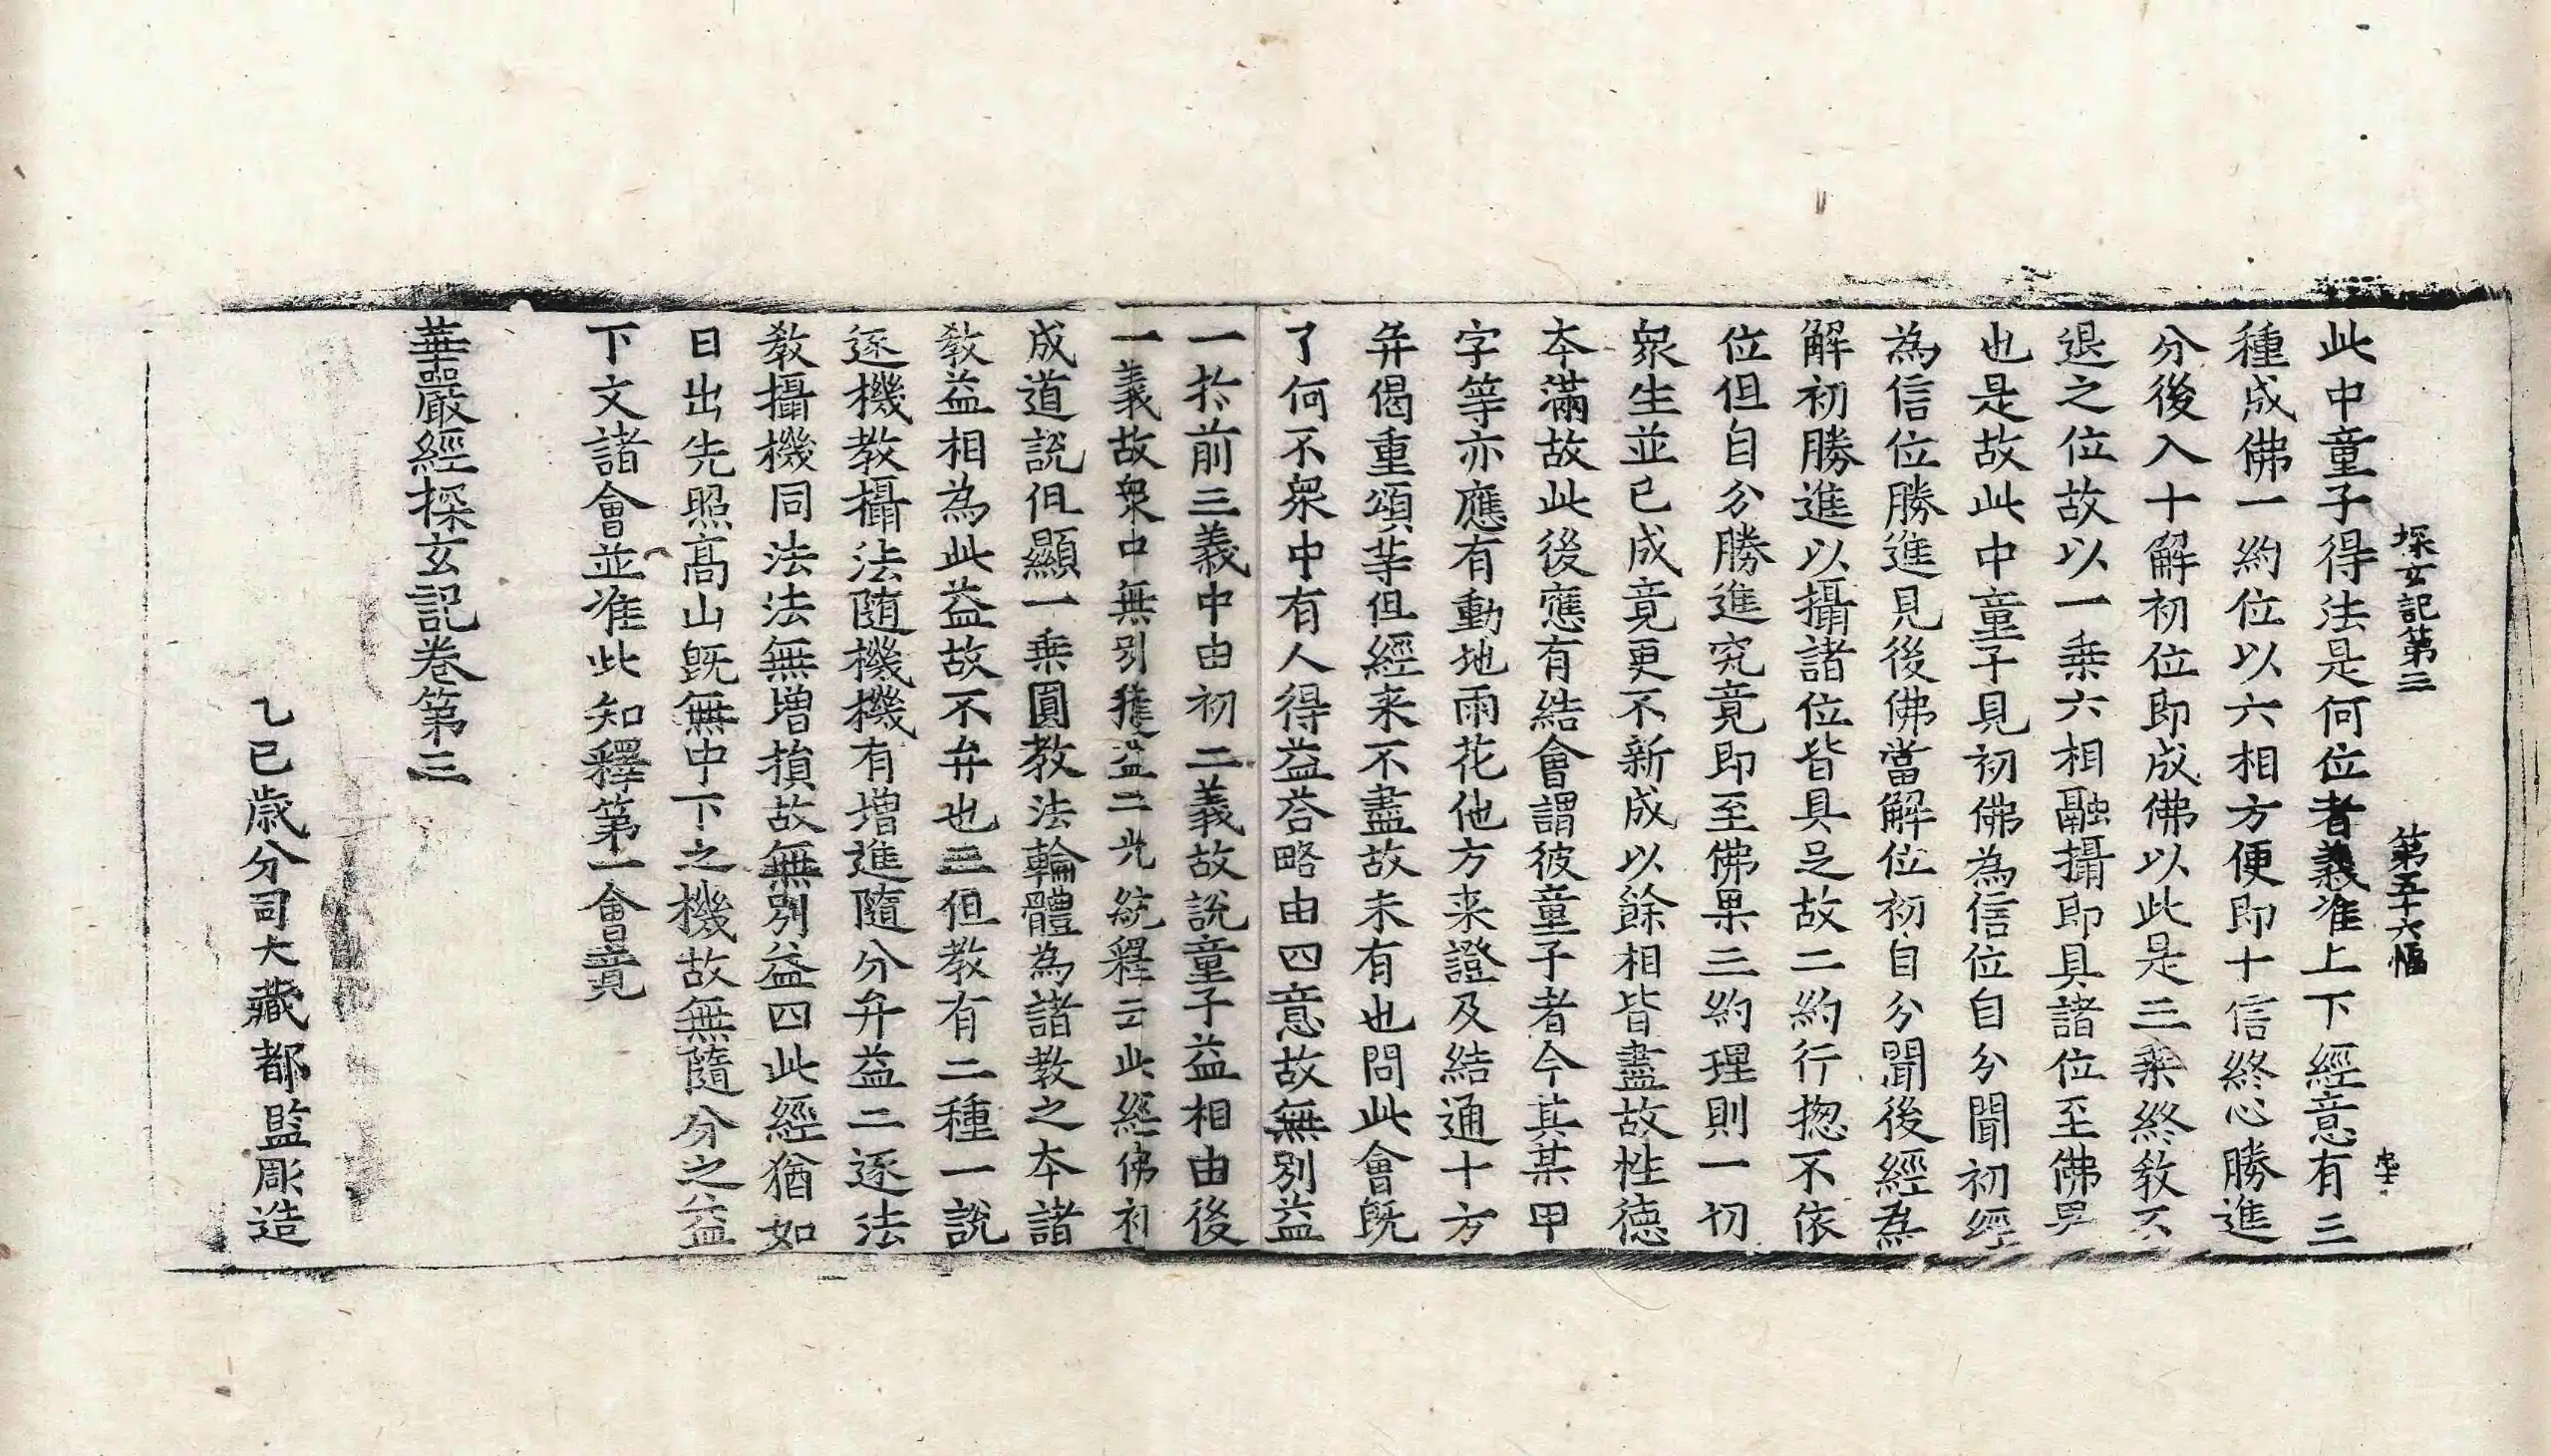 探玄記第三　第五十六幅
此中童子得法是何位者義准上下經意有三
種成佛一約位以六相方便即十信終心勝進
分後入十解初位即成佛以此是三乘終教不
退之位故以一乘六相融攝即具諸位至佛果
也是故此中童子見初佛為信位自分聞初經
為信位勝進見後佛當解位初自分聞後經為
解初勝進以攝諸位皆具足故二約行揔不依
位但自分勝進究竟即至佛果三約理則一切
衆生並已成竟更不新成以餘相皆盡故性德
夲滿故此後應有結會謂彼童子者今其某甲
字等亦應有動地雨花他方来證及結通十方
弁偈重頌等但經来不盡故未有也問此會旣
了何不衆中有人得益荅略由四意故無別益
一扵前三義中由初二義故說童子益相由後
一義故衆中無別獲益二光統釋云此經佛初
成道說但顯一乗圓教法輪體為諸教之夲諸
教益相為此益故不弁也三但教有二種一說
逐機教攝法隨機機有增進隨分弁益二逐法
教攝機同法法無增損故無別益四此經猶如
日出先照髙山旣無中下之機故無隨分之益
下文諸會並准此知釋第一會竟
華嚴經探玄記卷第三
乙巳歳分司大藏都監彫造